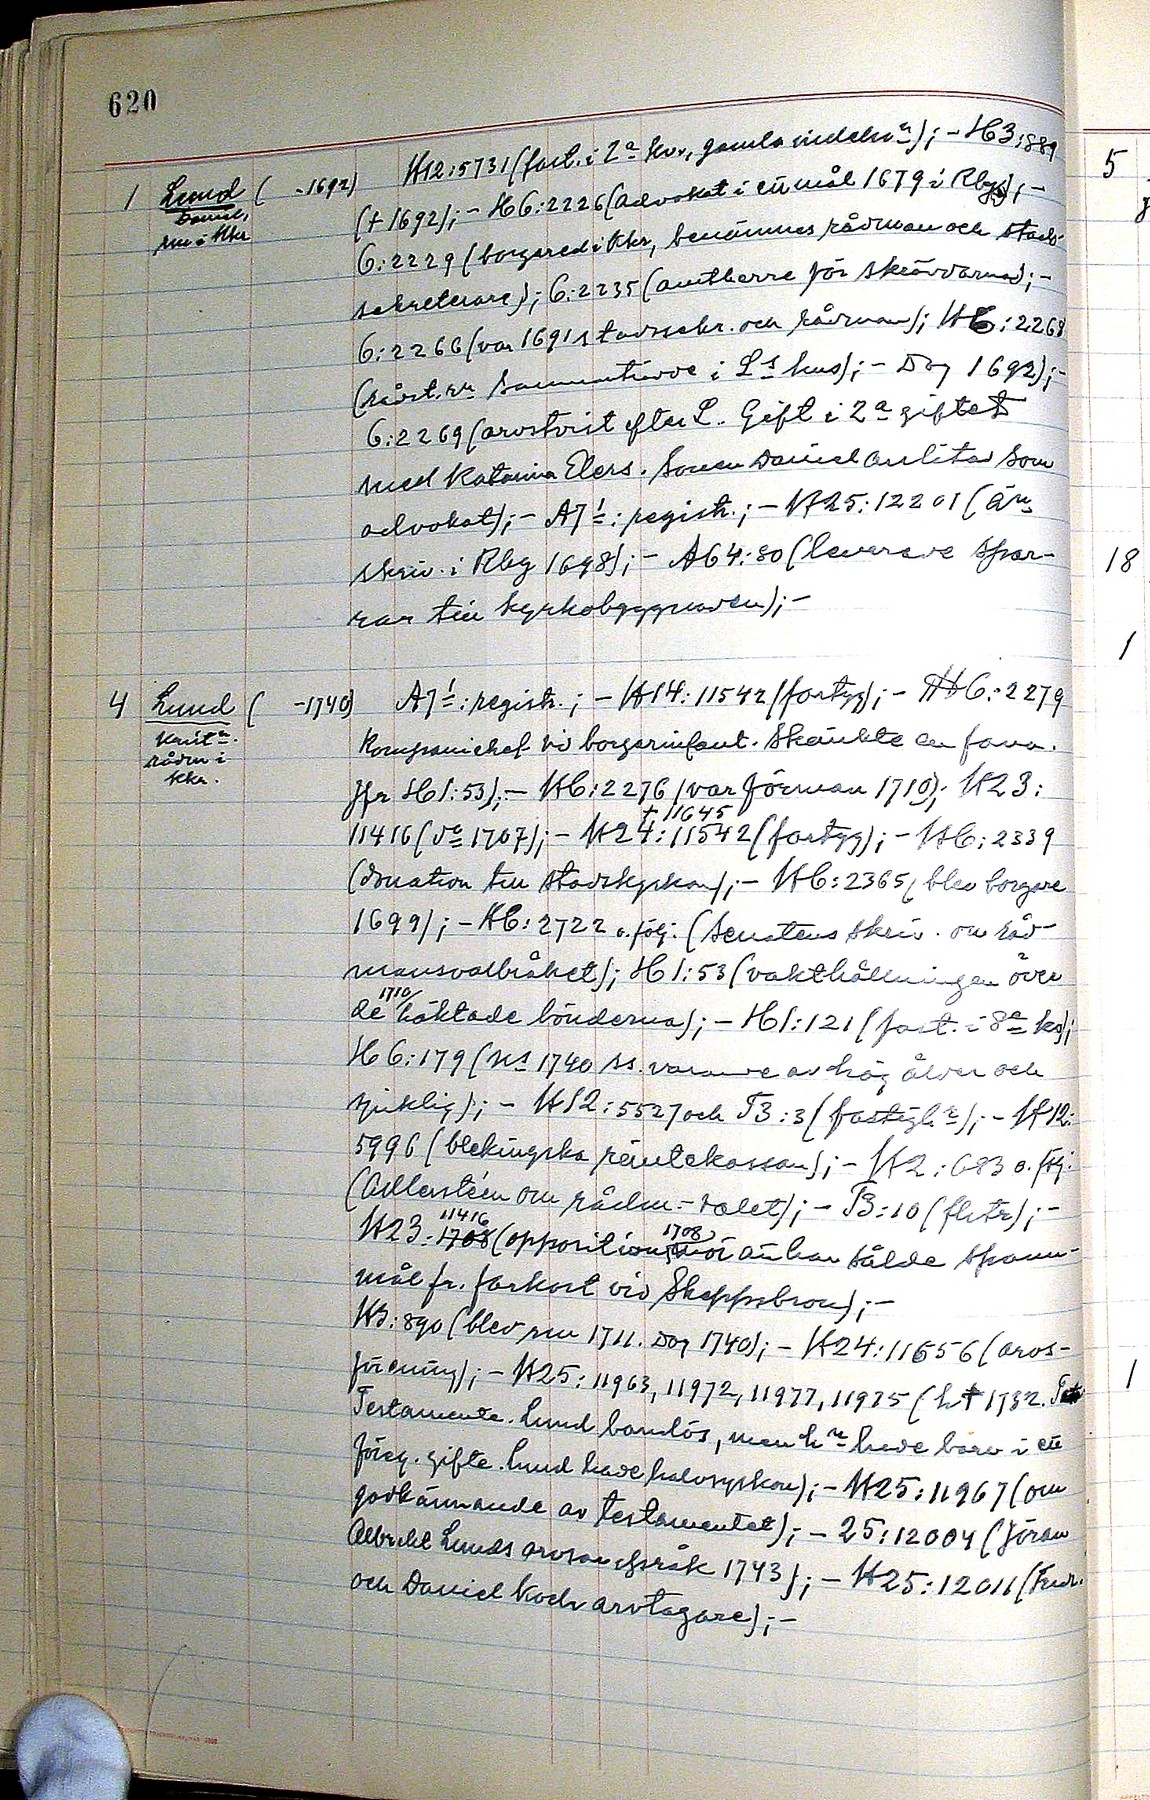 620
H12:5731 (fast. i 2a kv., gamla indeln); - H3:889
1 Lund ( -1692) (+ 1692); - H6:2226 (advokat i ett mål 1679 i Rby); -
Daniel,
rm i Khr
6:2229 (borgared i Khr, benämnes rådman och stads-
sekreterare); 6:2235 (amtherre för skräddarna); -
6:2266 (var 1691 stadssekr. och rådman); H6:2268
(rådst. i Ls hus); - Dog 1692); -
6:2269 (arvstvist efter L. Gift i 2a giftet
med Katarina Elers. Sonen Daniel anlitad som
advokat); - A71: registr.; - H25:12201 (äm
skriv. i Rby 1698); - A64:80 (levererade spar-
rar till kyrkobyggnaden); -
4 Lund ( -1740) A71: registr.; - H14:11542 (fartyg); - H6:2279
rådm i
Khr.
Kompanichef vid borgarinfant. Skänkte en fana.
Jfr H1:53); - H6:2276 (var förman 1710); H23:
+ 11645
11416 (do 1707); - H24:11542 (fartyg); - H6:2339
(donation till stadskyrkan); - H6:2365 (blev borgare
1699); - H6:2722 o. följ. (Senatens skriv. om råd-
mansvalbråket); H1:53 (vakthållningen över
1710
de häktade bönderna); - H1:121 (fast. i 8a kv);
H6:179 (1740 ss. varande av hög ålder och
sjuklig); - H12:5527 och T3:3 (fastigh); - H12:
5996 (blekingska räntekassan); - H2:683 o. följ.
(Adlersteen om rådm.-valet); - T3:10 (flitr); -
11416 1708
H23:1708 (opposition mot att han sålde spann-
mål fr. farkost vid Skeppsbron); -
H3:890 (blev rm 1711. Dog 1740); - H24:11656 (arvs-
förening); - H25:11963, 11972, 11977, 11975 (h + 1732.
Testamente. Lund barnlös, men hn hade barn i ett
föreg. gifte. Lund hade halvsyskon); - H25:11967 (om
godkännande av testamentet); - 25:12004 (Jöran
Albrekt Lunds arvsanspråk 1743); - H25:12011
och Daniel Koch arvtagare); -
5
18
1
1